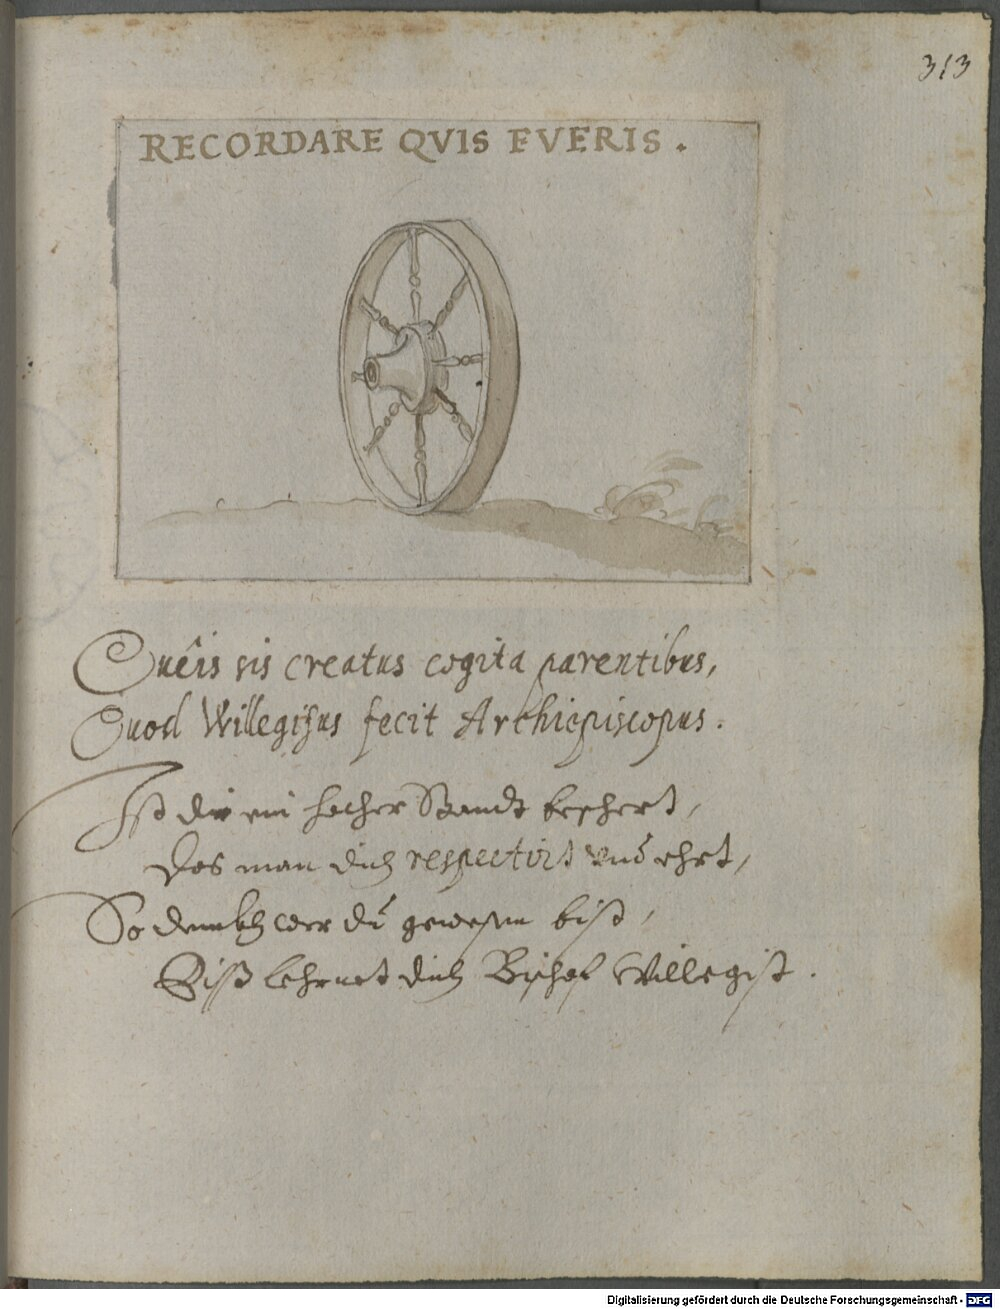 313
RECORDARE QVIS FVERIS.
Queîs sis creatus cogita parentibus,
Quod Willegisus fecit Archiepiscopus.
Ist dir ein hocher Standt beschert,
Das man dich respectirt und ehrt,
So denckh wer dú gewesen bist,
Diß lehrnet dich Bischof Willegist.
Digitalisierung gefördert durch die Deutsche Forschungsgemeinschaft - DFG